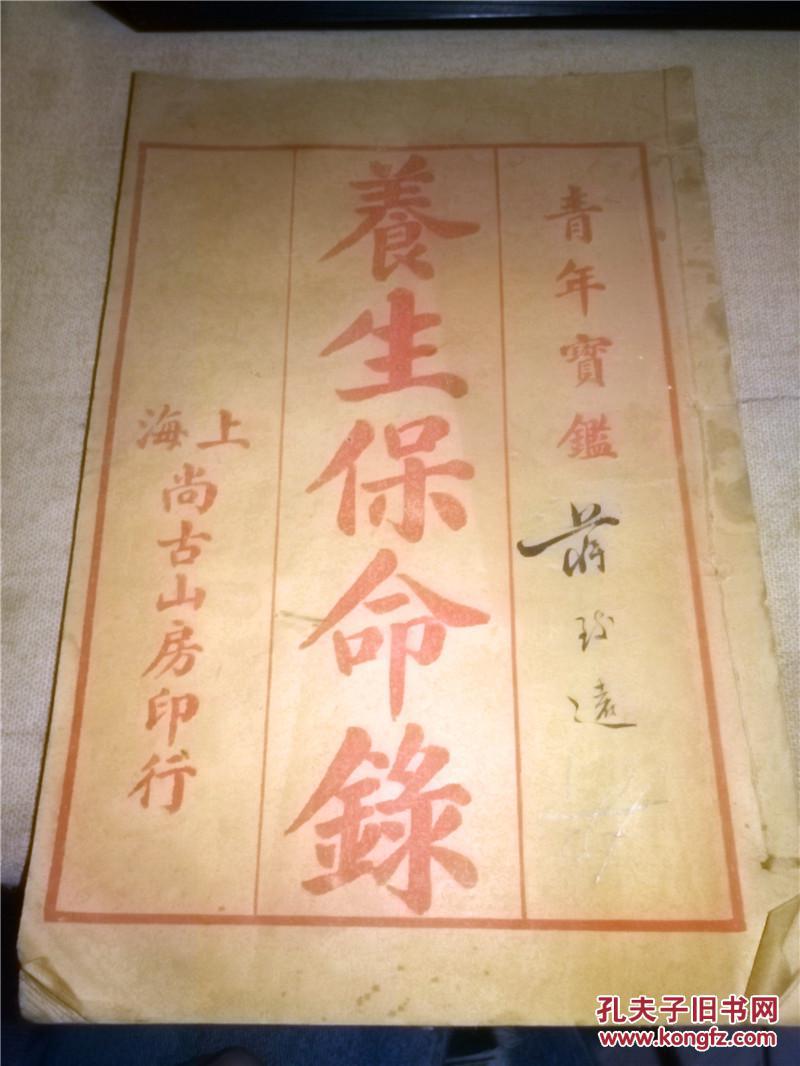 青年寶鑑
蔣 遠
養生保命錄
上海
尚古山房印行
孔夫子旧书网
www.kongfz.com